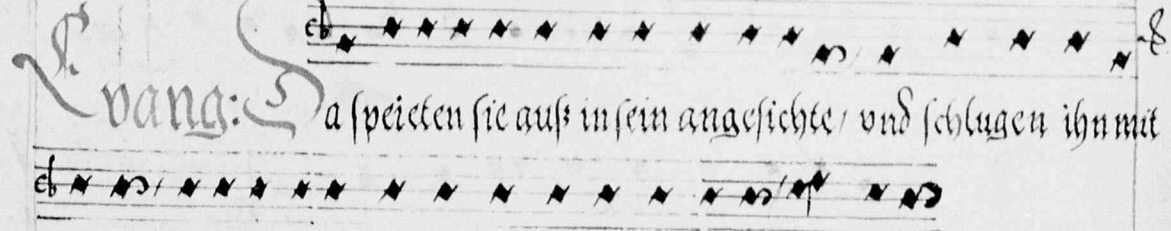 Evang: Da speieten sie auß in sein angesichte, vnd schlugen ihn mit